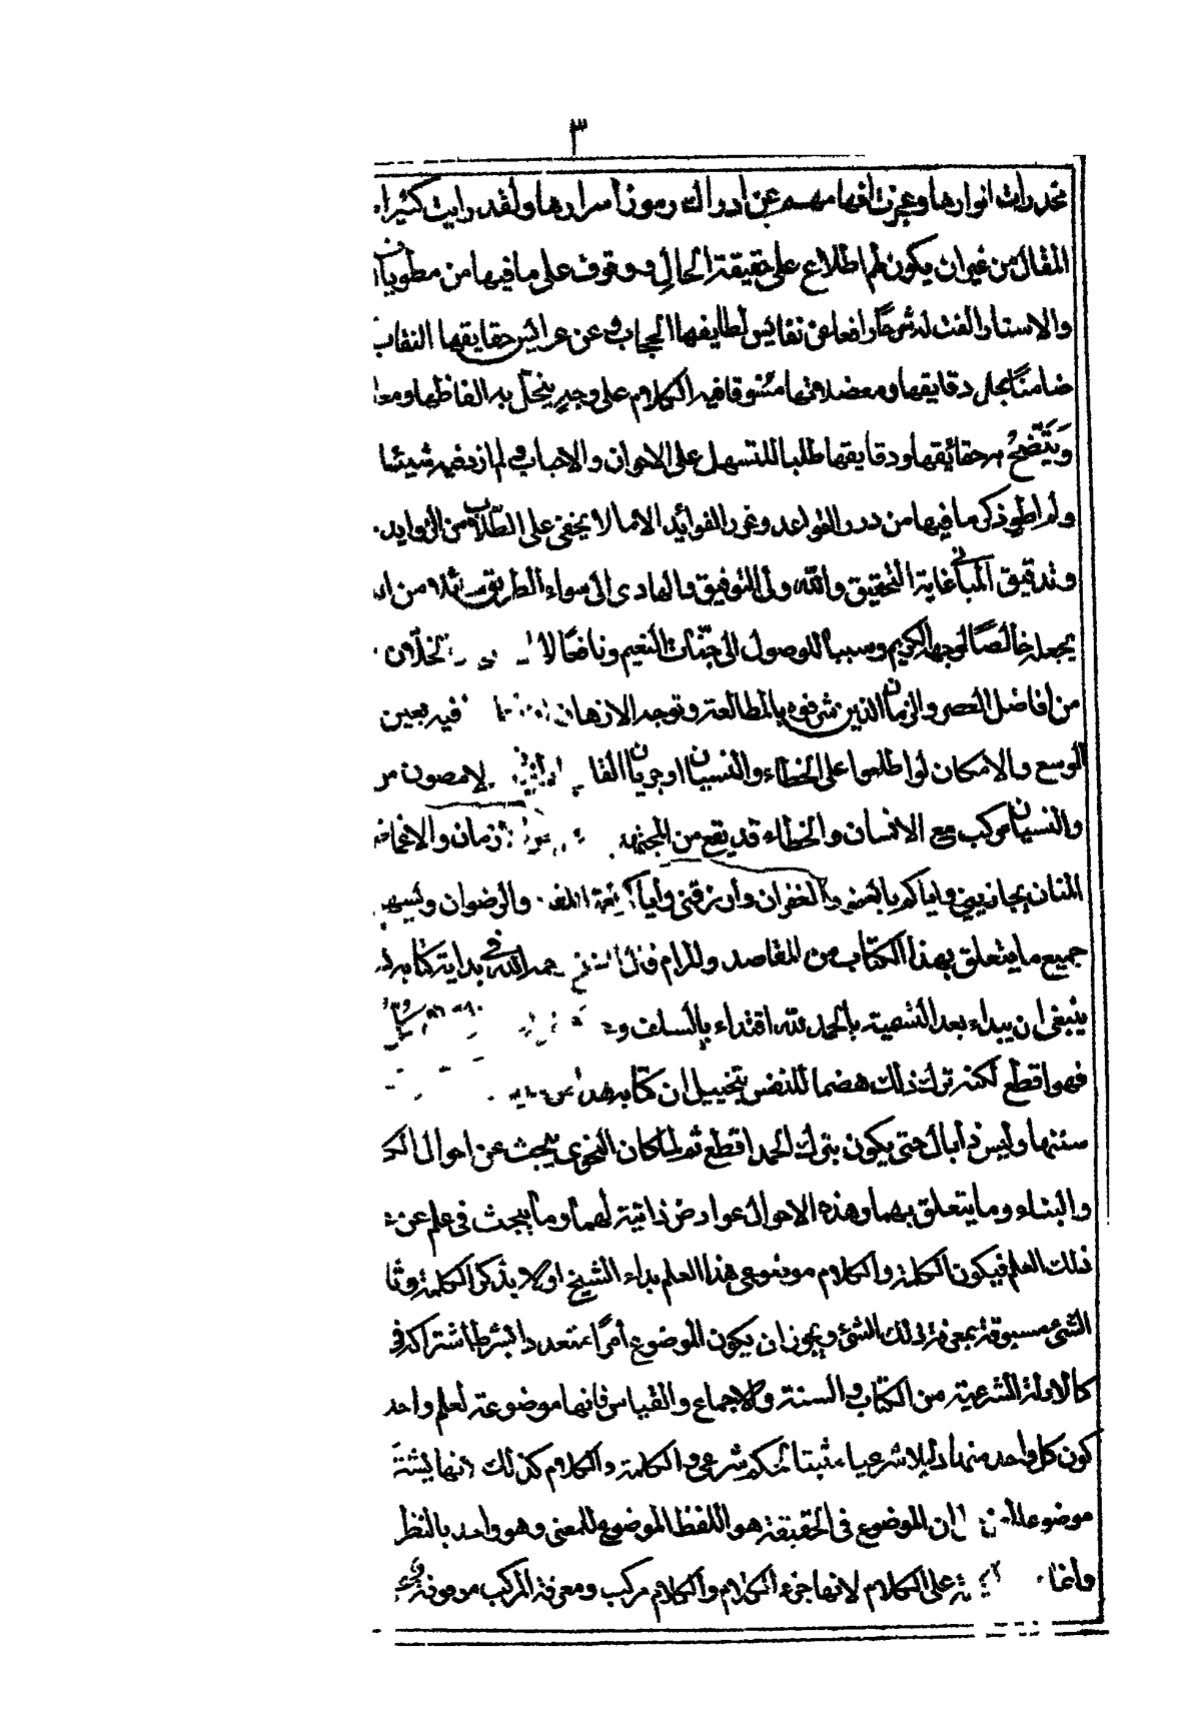 ٣
مخدرات انوارها وعجزت افهامهم عن ادراك رموز اسرارها ولقد رايت كثيرا
المقال من غير ان يكون لهم اطلاع على حقيقة الحال ووقوف على ما فيها من مطويات
والاستار الفت له شرحا رافعا عن نفائس لطايفها الحجاب وعن عرائس حقايقها النقاب
ضامنا بحل دقايقها ومعضلاتها مشوقا فيه الكلام على وجه ينحل به الفاظها
ويتضح به حقائقها ودقايقها طلبا للتسهيل على الاخوان والاحباب ولم ازد فيه شيئا
ولم اطو ذكر ما فيها من درر القواعد وغرر الفوائد الا ما لا يخفى على الطلاب من الزوايد
وتدقيق المباني غاية التحقيق والله ولى التوفيق والهادى الى سواء الطريق من
يجعله خالصا لوجهه الكريم وسببا للوصول الى جنات النعيم ونافعا الخلان
من افاضل العصر والزمان الذين شرفوه بالمطالعة وتوجه الاذهان فيه بعين
الوسع والامكان لو اطلعوا على الخطاء والنسيان او جريان القلم
والنسيان مركب مع الانسان والخطاء قد يقع من المجتهد
المنان يجازيني واياكم بالعفو والغفران وان يرزقني واياكم والرضوان
جميع ما يتعلق بهذا الكتاب من المقاصد والمرام حمد الله في بداية كتابه
ينبغى ان يبداء بعد التسمية بالحمد لله اقتداء بالسلف
فهو اقطع لكنه ترك ذلك هضما للنفس بتخييل ان كتابه هذا
سننها وليس ذا بال حتى يكون بترك الحمد اقطع ثم لما كان النحوى يبحث عن احوال
والبناء وما يتعلق بهما وهذه الاحوال عوارض ذاتية لهما وما يبحث في علم عن
ذلك العلم فيكون الكلمة والكلام موضوعى هذا العلم بداء الشيخ اولا بذكر الكلمة
الشئ مسبوقة بمعرفة ذلك الشئ ويجوز ان يكون الموضوع امرا متعددا بشرط اشتراكه في
كالادلة الشرعية من الكتاب والسنة والاجماع والقياس فانها موضوعة لعلم واحد
كون كل واحد منها دليلا شرعيا مثبتا لحكم شرعى والكلمة والكلام كذلك
ان الموضوع في الحقيقة هو اللفظ الموضوع للمعنى وهو واحد بالنظر
وانما على الكلام لانها جزء الكلام والكلام مركب ومعرفة المركب موقوفة